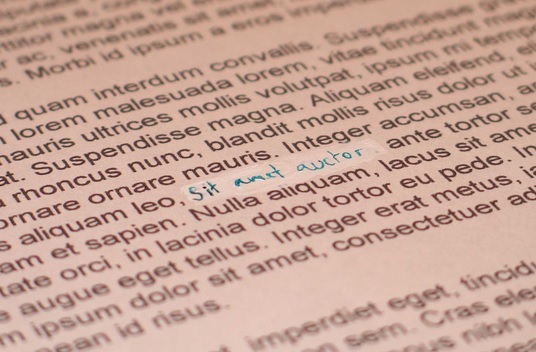 titor magna vel
ac, venenatis sit amet
s. Morbi id ipsum a eros imper
quam interdum convallis. Suspendisse
lorem malesuada lorem, vitae tincidunt
mauris ultrices mollis volutpat, ipsum mi temp
at. Suspendisse magna. Aliquam eleifend,
rhoncus nunc, blandit mollis risus dolor ut
ornare ornare mauris. Integer accumsan,
s aliquam leo, Sit amet auctor ante tortor
am et sapien. Nulla aliquam, lacus sit ame
tate orci, in lacinia dolor tortor eu pede. In
e augue eget tellus. Integer erat metus,
m ipsum dolor sit amet, consectetuer
nean id risus.
imperdiet eget, tincid
sem. Cras ele
cus nibh